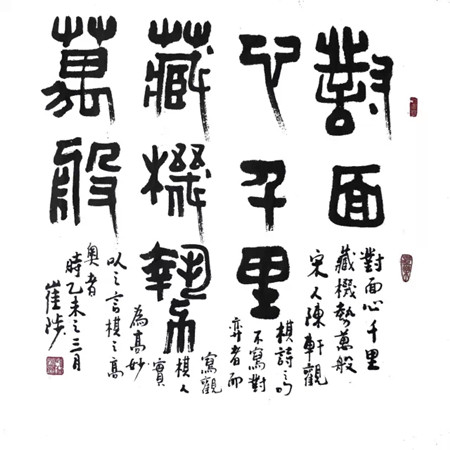 對面
心千里
藏機勢
萬般
對面心千里
藏機勢萬般
宋人陳軒觀
棋詩之句
不寫對
弈者而
寫觀
棋人
實
為高妙
以之言棋之高
奧者
時乙未之三月
崔陟